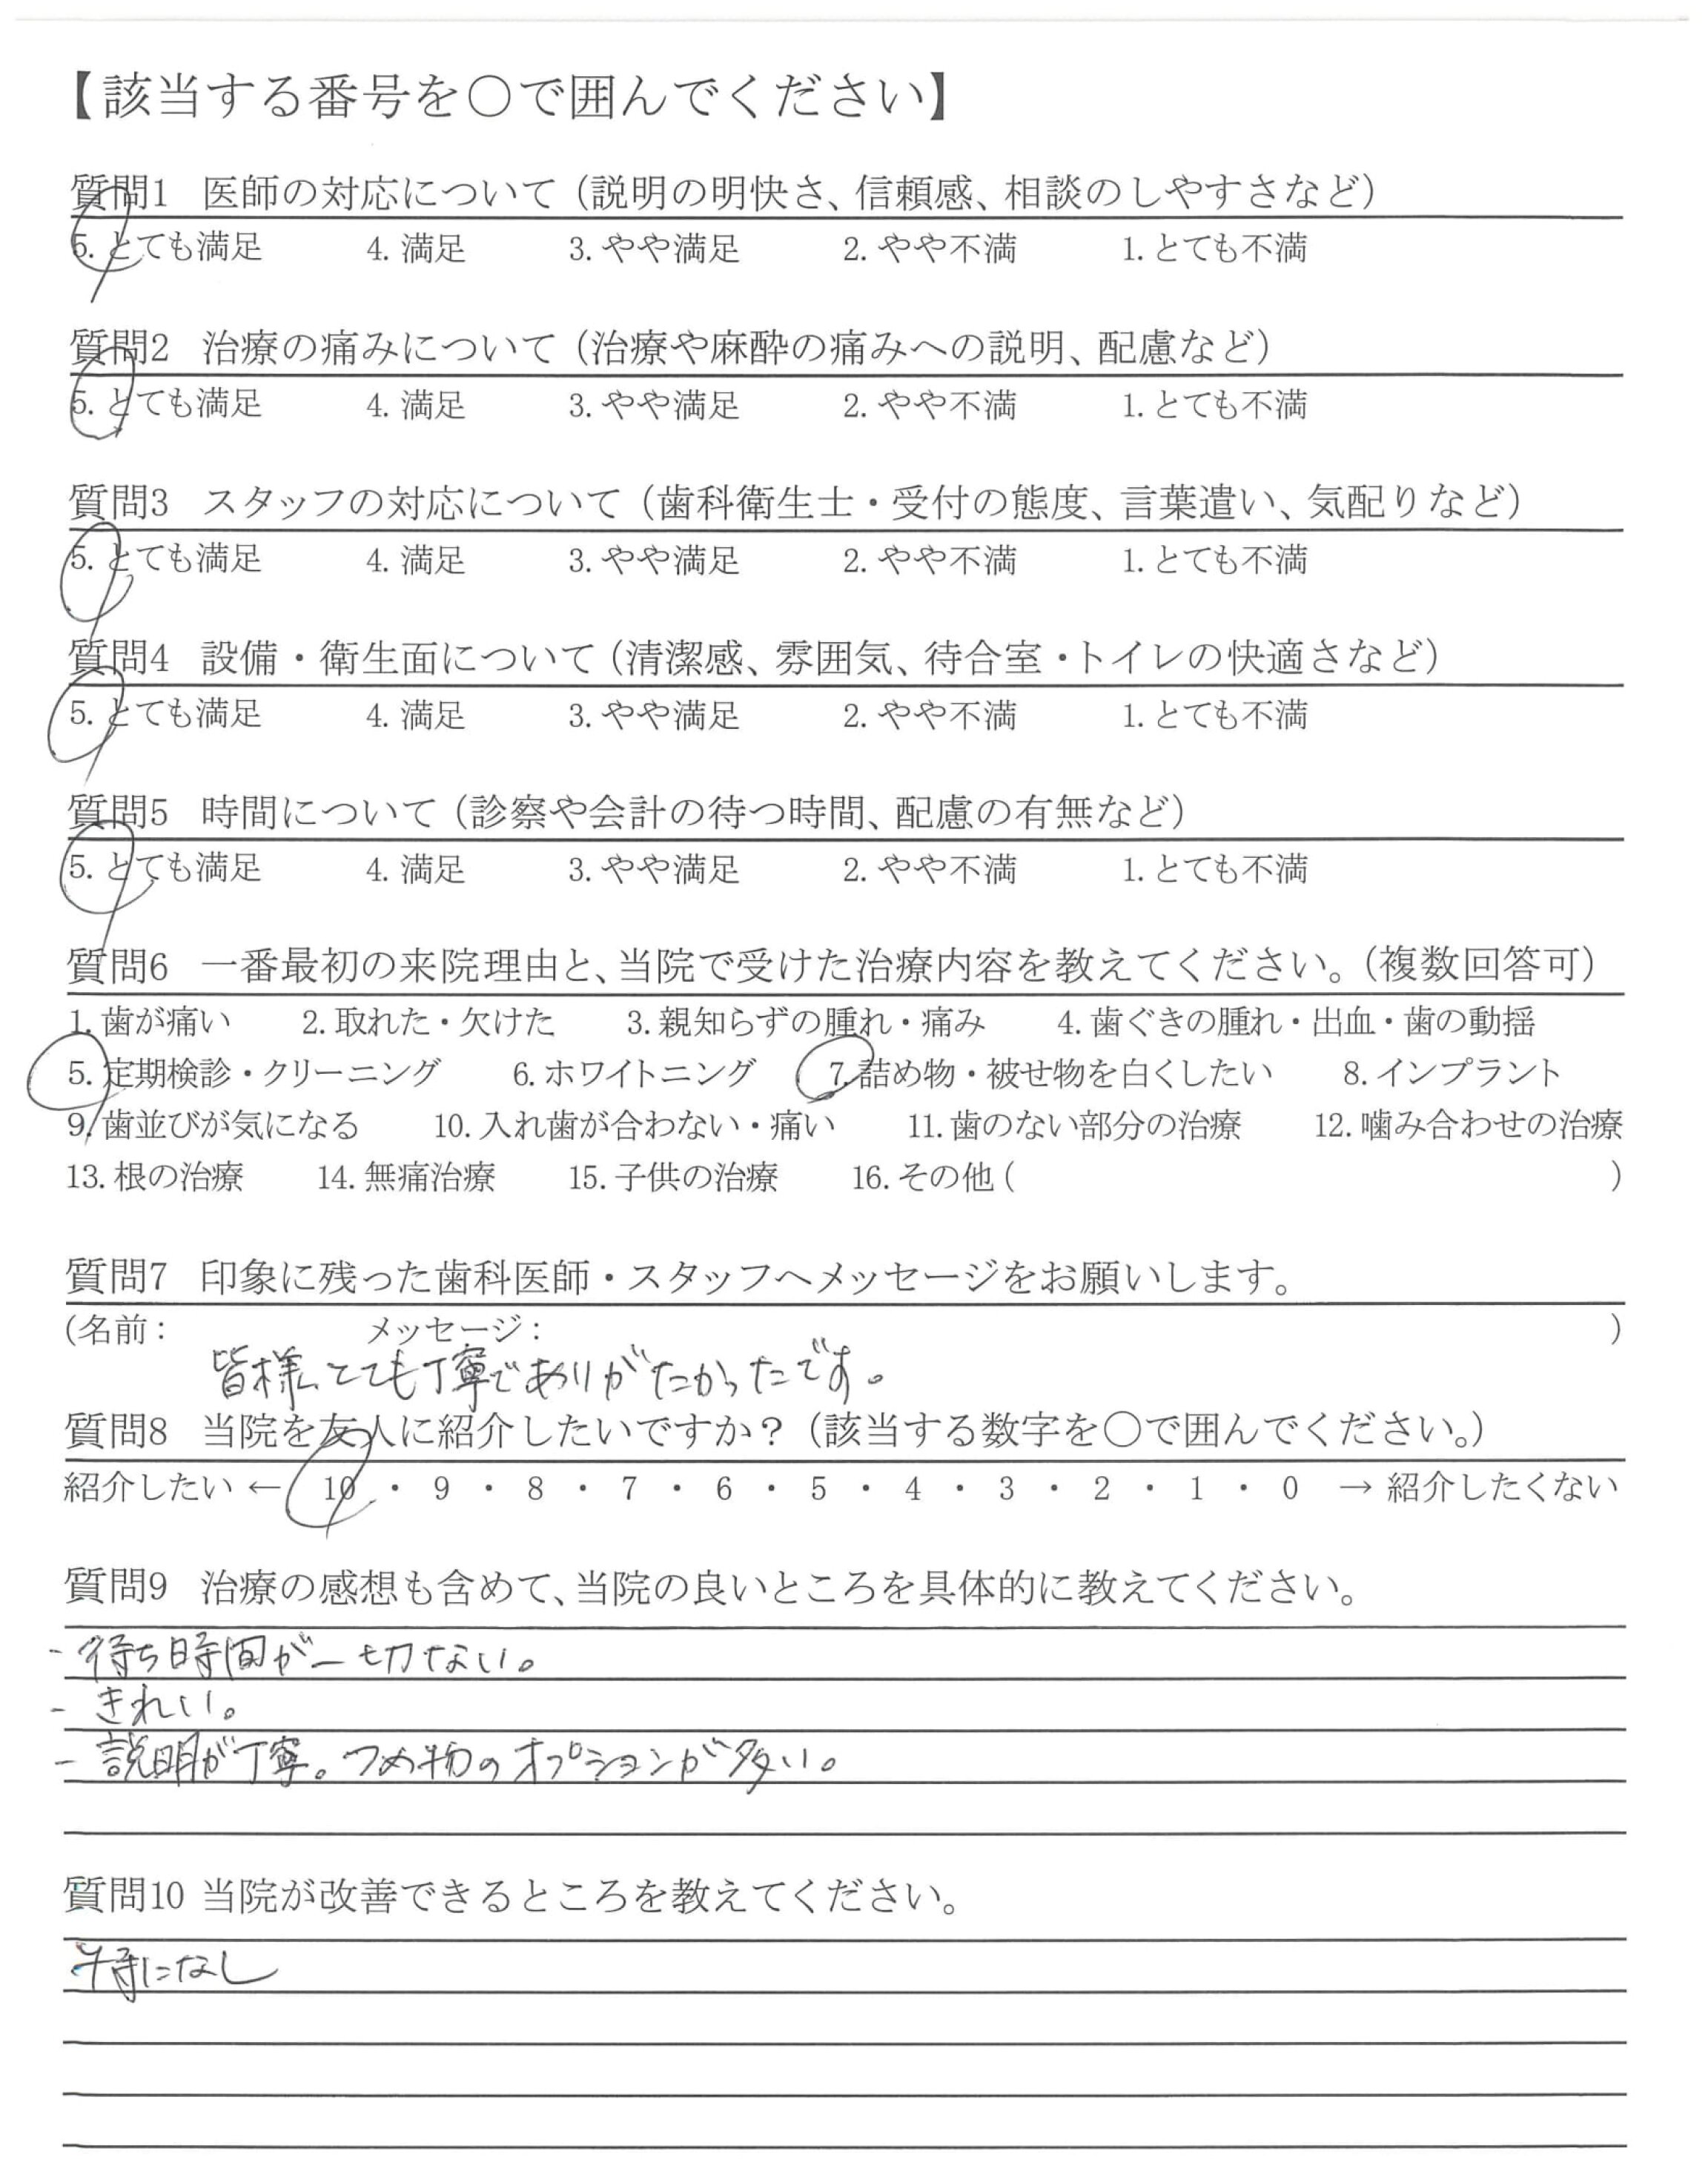 【該当する番号を○で囲んでください】
質問1 医師の対応について（説明の明快さ、信頼感、相談のしやすさなど）
5. とても満足 4. 満足 3. やや満足 2. やや不満 1. とても不満
質問2 治療の痛みについて（治療や麻酔の痛みへの説明、配慮など）
5. とても満足 4. 満足 3. やや満足 2. やや不満 1. とても不満
質問3 スタッフの対応について（歯科衛生士・受付の態度、言葉遣い、気配りなど）
5. とても満足 4. 満足 3. やや満足 2. やや不満 1. とても不満
質問4 設備・衛生面について（清潔感、雰囲気、待合室・トイレの快適さなど）
5. とても満足 4. 満足 3. やや満足 2. やや不満 1. とても不満
質問5 時間について（診察や会計の待つ時間、配慮の有無など）
5. とても満足 4. 満足 3. やや満足 2. やや不満 1. とても不満
質問6 一番最初の来院理由と、当院で受けた治療内容を教えてください。（複数回答可）
1. 歯が痛い 2. 取れた・欠けた 3. 親知らずの腫れ・痛み 4. 歯ぐきの腫れ・出血・歯の動揺
5. 定期検診・クリーニング 6. ホワイトニング 7. 詰め物・被せ物を白くしたい 8. インプラント
9. 歯並びが気になる 10. 入れ歯が合わない・痛い 11. 歯のない部分の治療 12. 噛み合わせの治療
13. 根の治療 14. 無痛治療 15. 子供の治療 16. その他（ ）
質問7 印象に残った歯科医師・スタッフへメッセージをお願いします。
（名前： メッセージ： ）
皆様、とても丁寧でありがたかったです。
質問8 当院を友人に紹介したいですか？（該当する数字を○で囲んでください。）
紹介したい ← 10 ・ 9 ・ 8 ・ 7 ・ 6 ・ 5 ・ 4 ・ 3 ・ 2 ・ 1 ・ 0 → 紹介したくない
質問9 治療の感想も含めて、当院の良いところを具体的に教えてください。
- 待ち時間が一切ない。
- きれい。
- 説明が丁寧。つめ物のオプションが多い。
質問10 当院が改善できるところを教えてください。
特になし